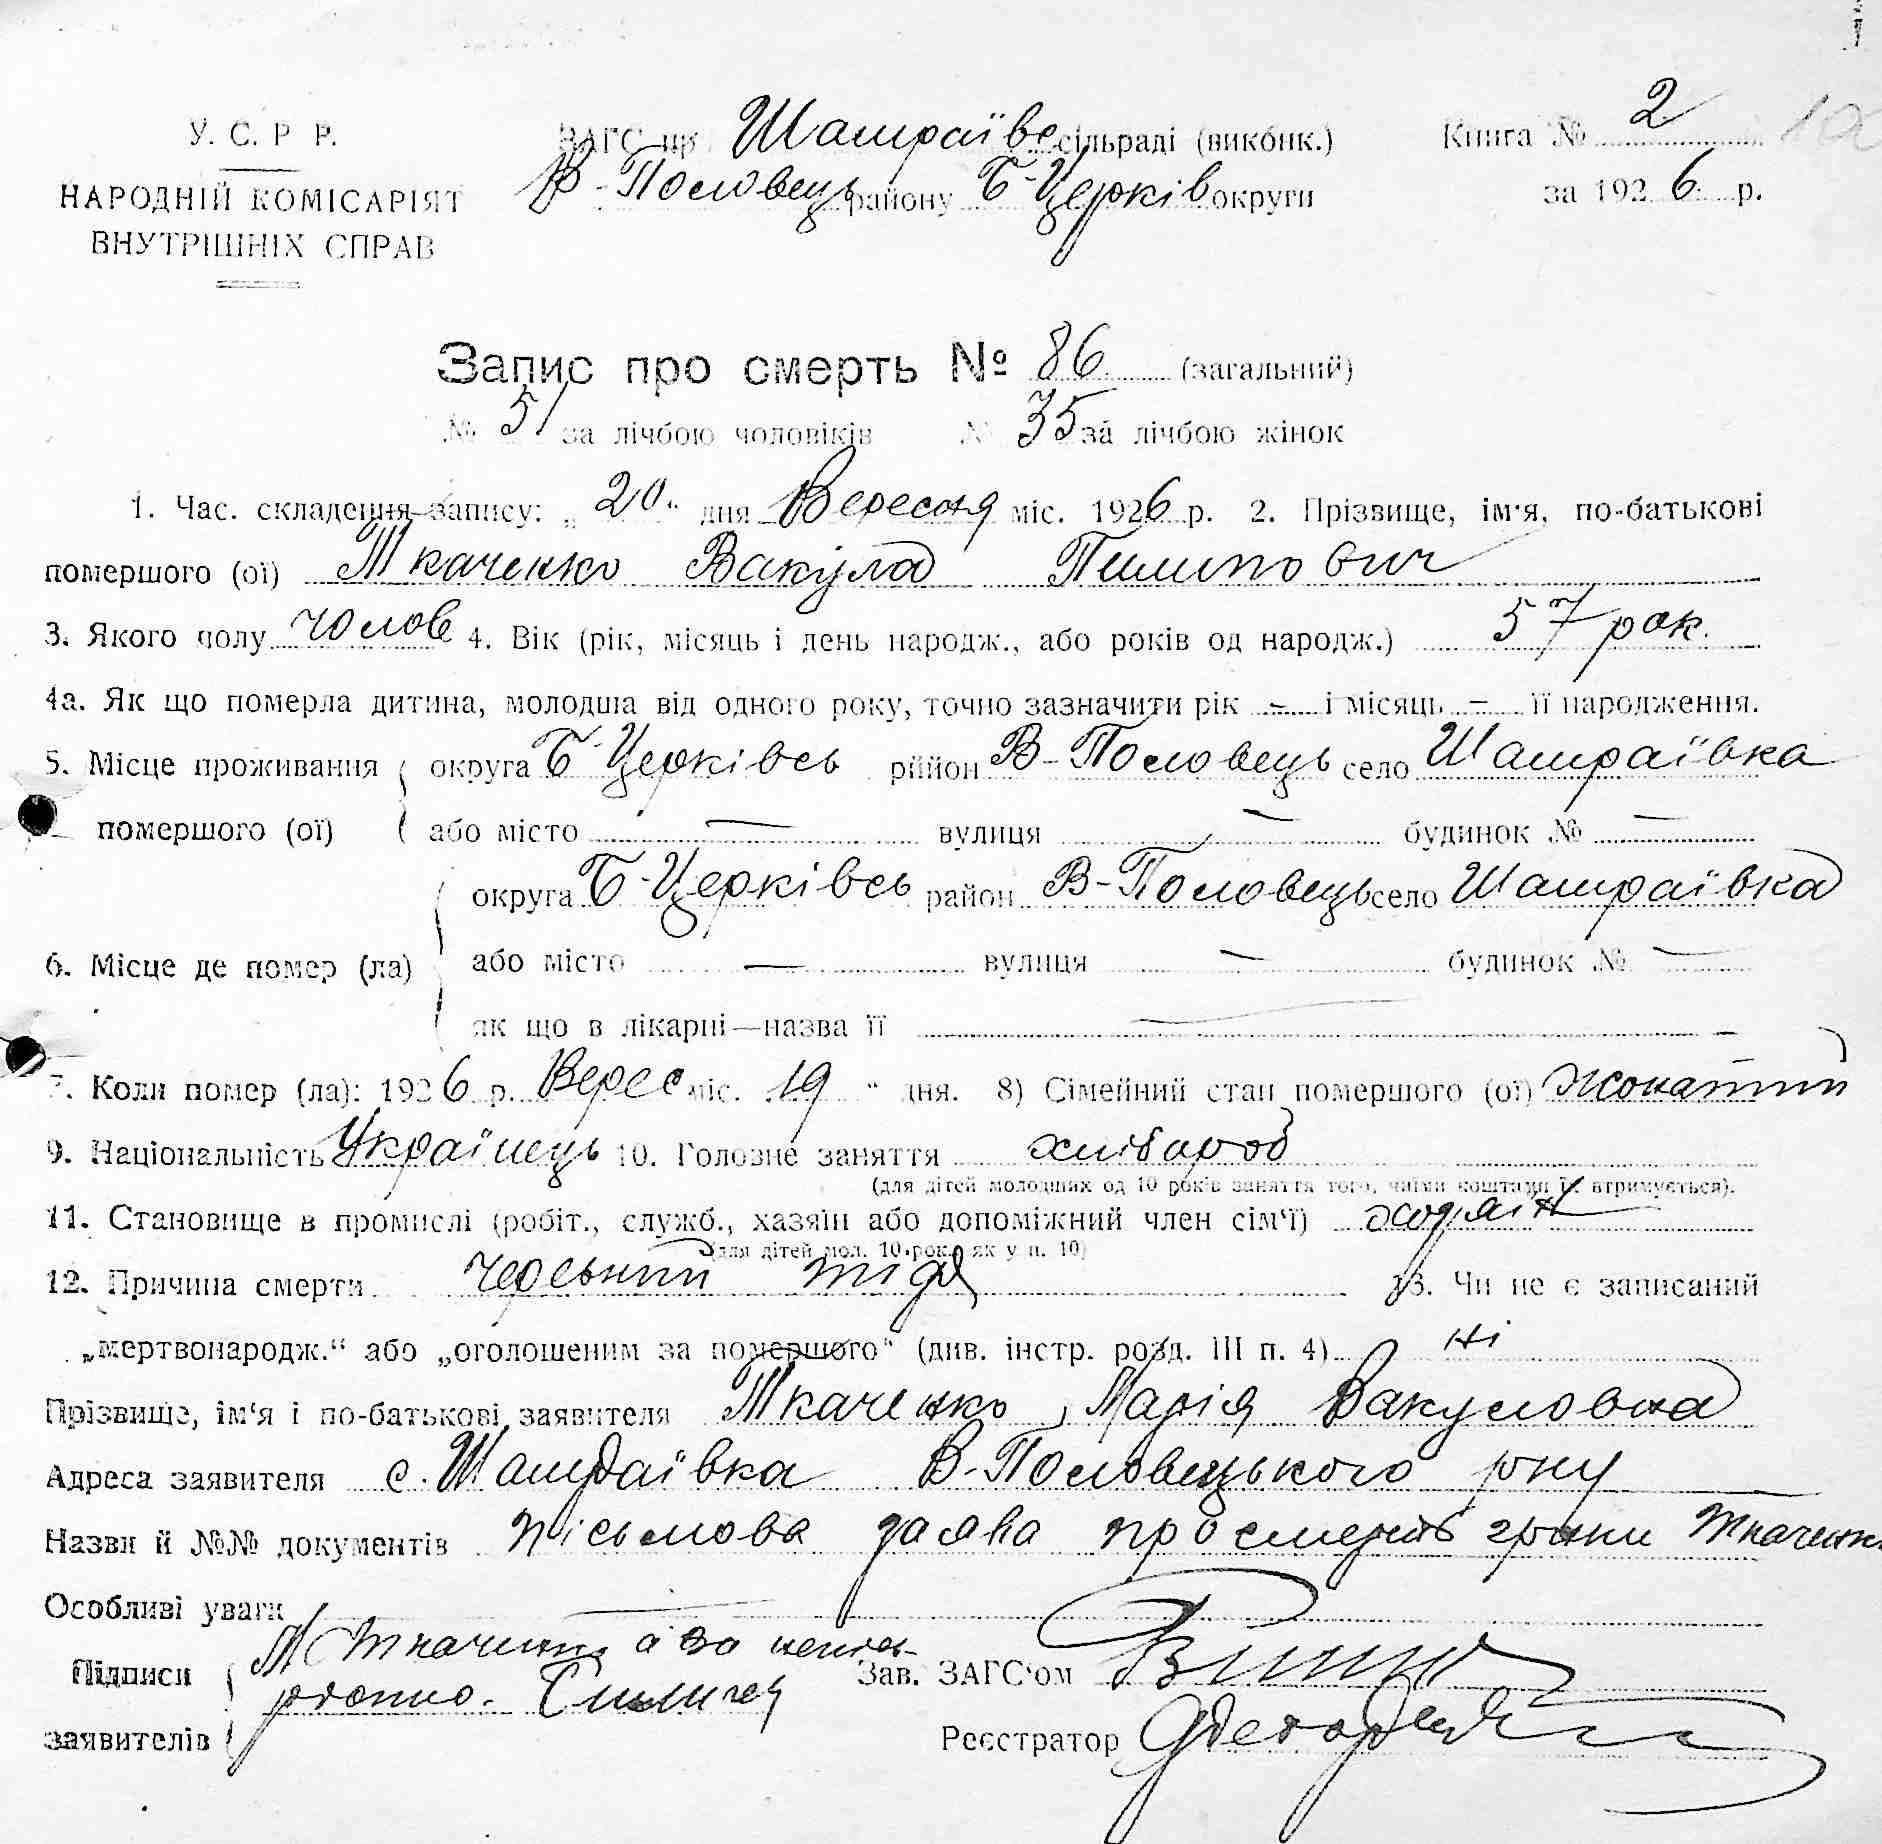 У. С. Р Р.
НАРОДНІЙ КОМІСАРІЯТ
ВНУТРІШНІХ СПРАВ
ЗАГС при Шамраївс сільраді (виконк.)
В-Половець району Б-Церків округи
Книга № 2
за 1926 р.
Запис про смерть № 86 (загальний)
№ 51 за лічбою чоловіків № 35 за лічбою жінок
1. Час. складення запису: „20“ дня Вересня міс. 1926 р. 2. Прізвище, ім'я, по-батькові
помершого (ої) Ткаченко Вакула Пилипович
3. Якого полу чолов 4. Вік (рік, місяць і день народж., або років од народж.) 57 рок.
4а. Як що померла дитина, молодша від одного року, точно зазначити рік – і місяць – її народження.
5. Місце проживання округа Б-Церківсь район В-Половець село Шамраївка
помершого (ої) або місто — вулиця — будинок № —
округа Б-Церківсь район В-Половець село Шамраївка
6. Місце де помер (ла) або місто — вулиця — будинок № —
як що в лікарні—назва її —
7. Коли помер (ла): 1926 р. Верес міс. 19 “ дня. 8) Сімейний стан помершого (ої) жонатий
9. Національність Українець 10. Головне заняття хлібороб
(для дітей молодших од 10 років заняття того, чиїми коштами їх втримується).
11. Становище в промислі (робіт., служб., хазяїн або допоміжний член сім'ї) хазяїн
(для дітей мол. 10 рок. як у п. 10)
12. Причина смерти 13. Чи не є записаний
„мертвонародж.“ або „оголошеним за помершого“ (див. інстр. розд. III п. 4) ні
Прізвище, ім'я і по-батькові заявителя Ткаченко Марія Вакуловна
Адреса заявителя с. Шамраївка В-Половецького рну
Назви й №№ документів пісьмова заява про смерть гр-ки Ткаченк
Особливі уваги —
Підписи М Ткаченко а за непись-
Зав. ЗАГС'ом
заявителів
Реєстратор